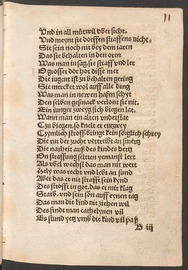 Und in all mütwil vber sich.
Und meynt sie dorffen straffens nicht.
Sie sein noch nit bey dem
Das sie behalten in dem
Was man in sag, sie straff und
O grosser dor hör disse mer
Die jugent ist zu behalten gering
Sie mercket wol auff alle ding
Was man in newen hafen schyt
Den selben gesmack verlont sie nit.
Ein junger zweyg sich biegen lat,
Wann man ein alten
Zu biegen, so knelt er entzwey
Zymlich straff bringt kein sorglich schrey
Die rut der zucht vertreibt an smertz
Die narheit auß des kindes hertz
On straffung selten yemant lert
Als übel wechst das man nit wert
Hely was recht und lebt an sund
Aber das er nit strafft sein kynd
Das strafft in got, das er mit klag
Starb. und sein sön auff eynen tag
Das man die kind nit ziehen wil
Des findt man catheleynen vil
Es stund yetz umb die kind vil baß
B iij